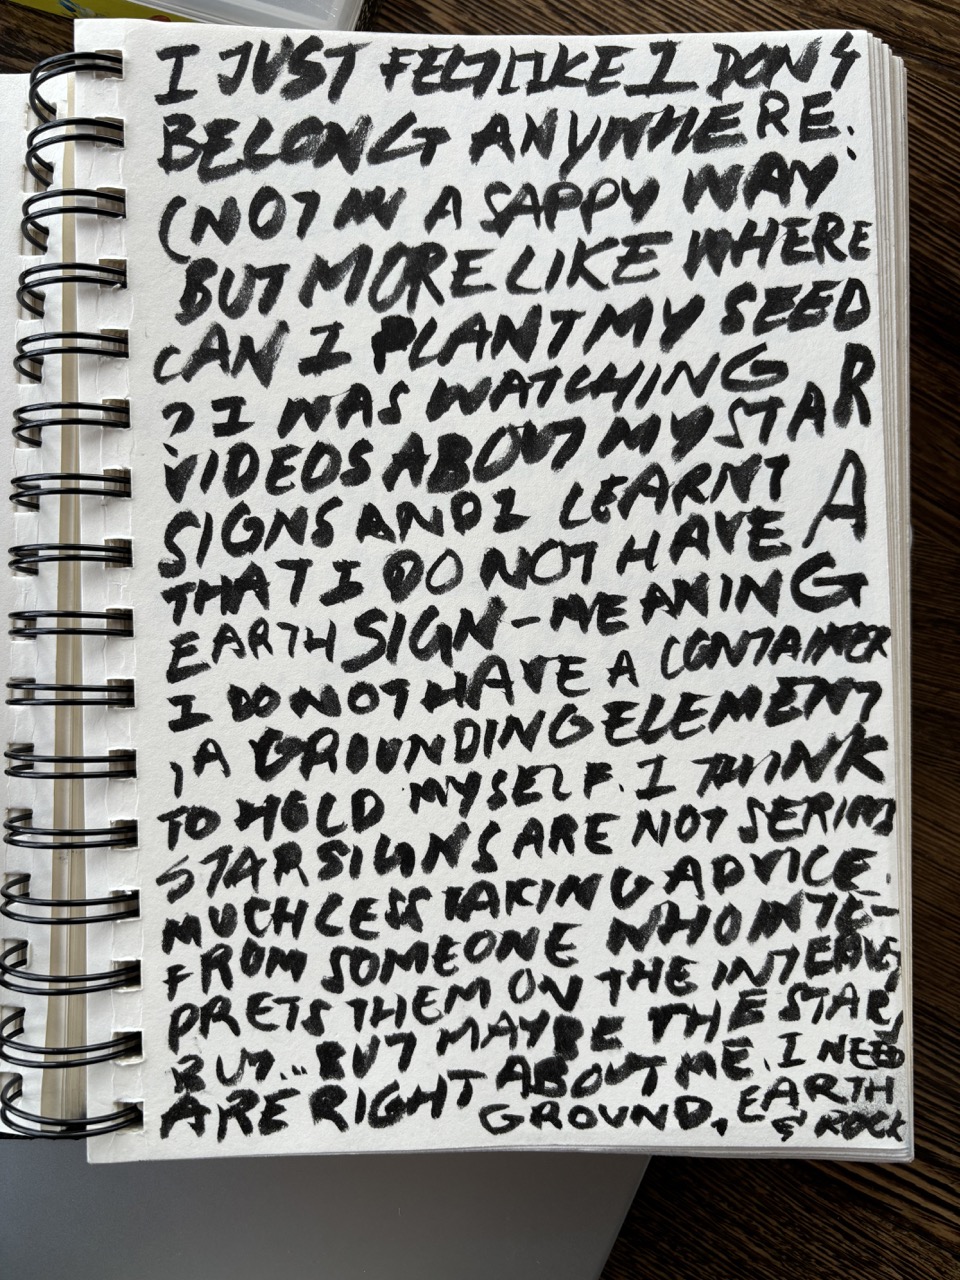 I JUST FELT LIKE I DON'T
BELONG ANYWHERE.
(NOT IN A SAPPY WAY
BUT MORE LIKE WHERE
CAN I PLANT MY SEED
? I WAS WATCHING
VIDEOS ABOUT MY STAR
SIGNS AND I LEARNT A
THAT I DO NOT HAVE
EARTH SIGN - MEANING
I DO NOT HAVE A CONTAINER
, A GROUNDING ELEMENT
TO HOLD MYSELF. I THINK
STARSIGNS ARE NOT SERIOUS
MUCH LESS TAKING ADVICE.
FROM SOMEONE WHO INTE-
PRETS THEM ON THE INTERNET
BUT... BUT MAYBE THE STARS
ARE RIGHT ABOUT ME. I NEED
GROUND, EARTH
& ROCK